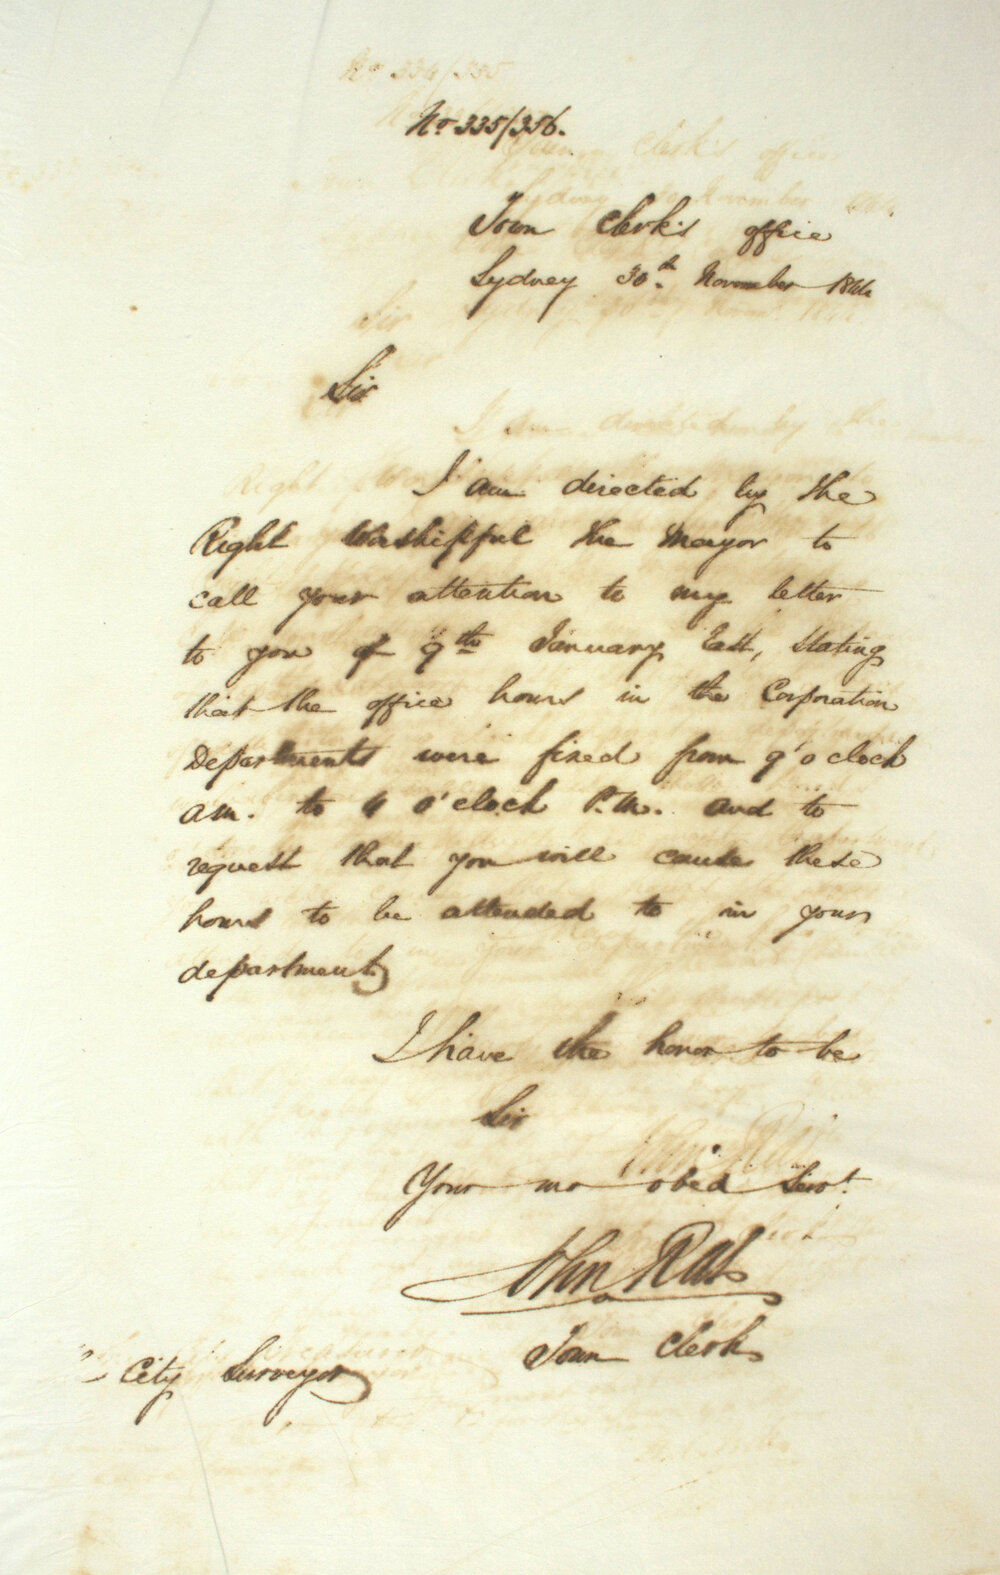 No 335/356.
Town Clerk's office
Sydney 30th November 1844
Sir
I am directed by the
Right Worshipful the Mayor to
call your attention to my letter
to you of 9th January last, stating
that the office hours in the Corporation
Departments were fixed from 9 o'clock
am. to 4 o'clock P.M. and to
request that you will cause these
hours to be attended to in your
department
I have the honor to be
Sir
Your mo obed Servt.
John Rae
Town Clerk
City Surveyor